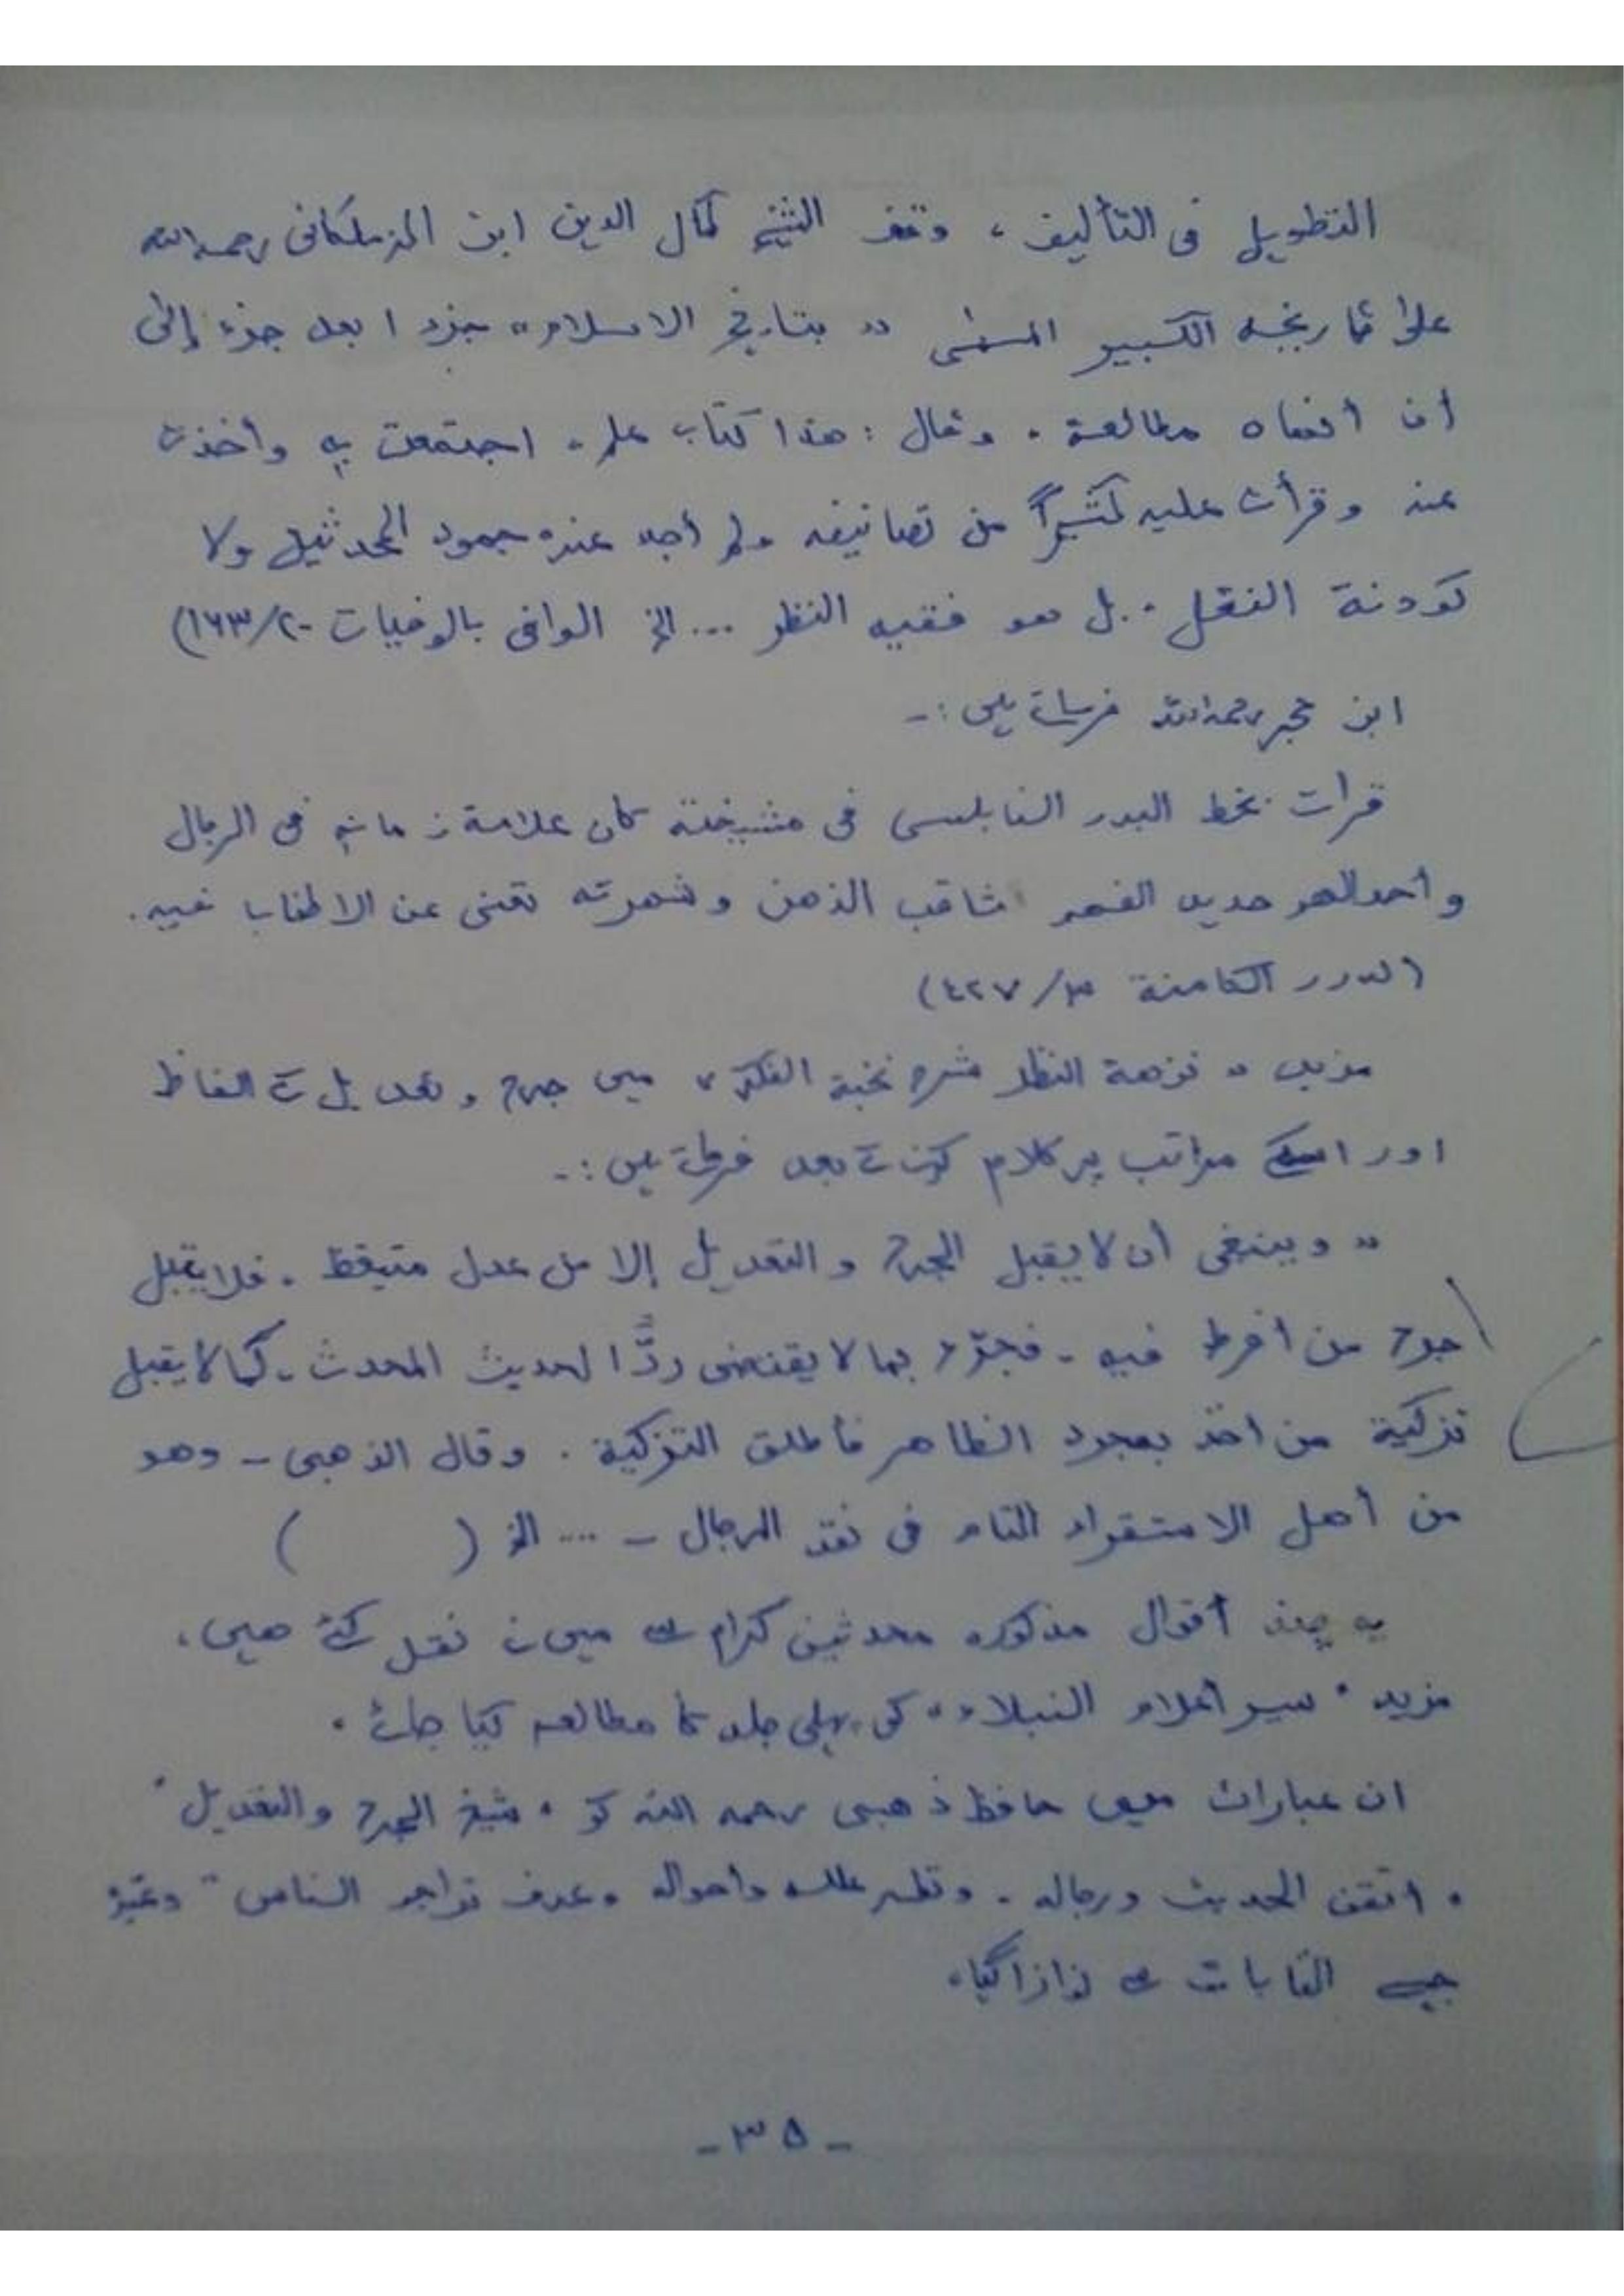 التطويل في التأليف ، وقف الشيخ كمال الدين ابن الزملكاني رحمه الله
على تاريخه الكبير المسمى " بتاريخ الاسلام" جزءا بعد جزء إلى
أن أنهاه مطالعة . وقال : هذا كتاب علم . اجتمعت به وأخذت
عنه وقرأت عليه كثيراً من تصانيفه ولم أجد عنده جمود المحدثين ولا
كودنة النقل . بل هو فقيه النظر ... الخ الوافى بالوفيات ٢٠/١٦٣)
ابن حجر رحمه الله فرماتے ہیں :-
قرات بخط البدر النابلسى فى مشيخته كان علامة زمانه فى الرجال
وأحوالهم حديد الفهم ثاقب الذهن وشهرته تغنى عن الاطناب فيه .
(الدرر الكامنة ٣/٤٢٧)
مزید " نزهة النظر شرح نخبة الفكر " میں جرح و تعدیل کے الفاظ
اور اسکے مراتب پر کلام کرنے کے بعد فرماتے ہیں :-
" وينبغى أن لا يقبل الجرح و التعديل إلا من عدل متيقظ . فلا يقبل
جرح من أفرط فيه - فجرّح بما لا يقتضى ردًّا لحديث المحدث . كما لا يقبل
تزكية من اخذ بمجرد الظاهر فأطلق التزكية . وقال الذهبى - وهو
من أهل الاستقراء التام فى نقد الرجال - ... الخ ( )
یہ چند أقوال مذکورہ محدثین کرام سے میں نے نقل کئے ھیں ،
مزید " سير أعلام النبلاء " کی پہلی جلد کا مطالعہ کیا جائے .
ان عبارات میں حافظ ذھبی رحمہ اللہ کو " شيخ الجرح والتعديل "
" اتقن الحديث ورجاله . ونظر علله وأحواله . وعرف تراجم الناس " وغیرہ
جیسے القابات سے نوازا گیا .
- ٣٥ -